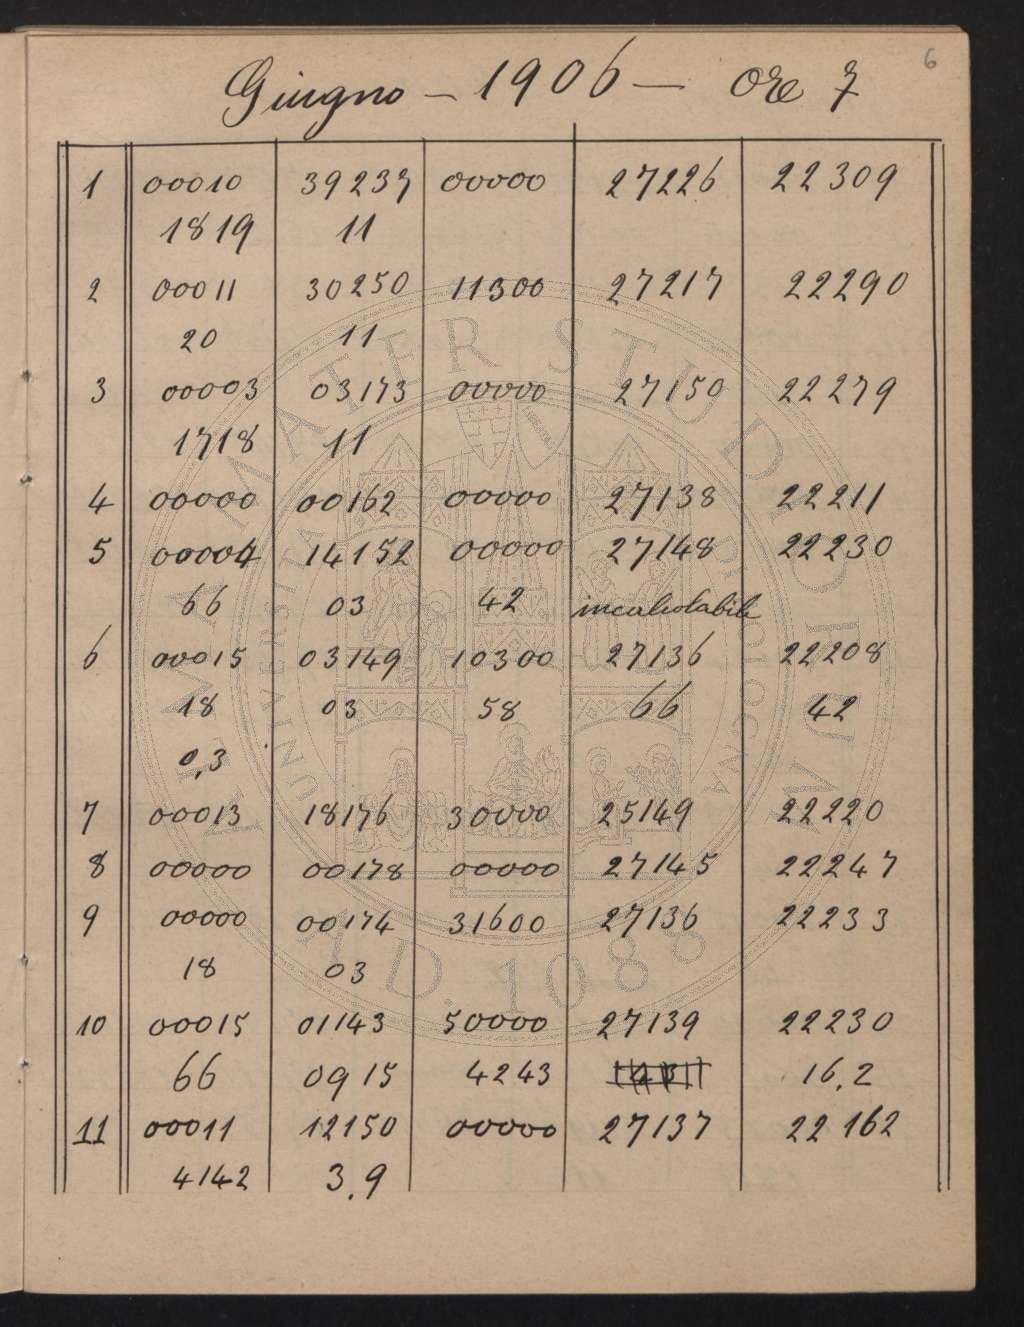 6
Giugno – 1906 – Ore 7
1 00010 39237 00000 27226 22309
1819 11
2 00011 30250 11300 27217 22290
20 11
3 00003 03173 00000 27150 22279
1718 11
4 00000 00162 00000 27138 22211
5 00004 14152 00000 27148 22230
66 03 42 incalcolabile
6 00015 03149 10300 27136 22208
18 03 58 66 42
0,3
7 00013 18176 30000 25149 22220
8 00000 00178 00000 27145 22247
9 00000 00174 31600 27136 22233
18 03
10 00015 01143 50000 27139 22230
66 0915 4243 16.2
11 00011 12150 00000 27137 22162
4142 3.9
ALMA MATER STUDIORUM
UNIVERSITAS BONONIENSIS
A.D. 1088